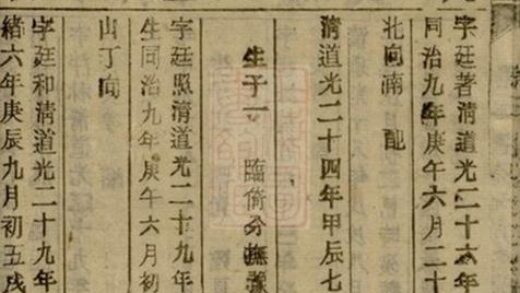 字廷著清道光二十六年
同治九年庚午六月二十
北向滴配
清道光二十四年甲辰七
生子一 臨倚分撫
字廷照清道光二十九年
生同治九年庚午六月初
山丁向
字廷和清道光二十九年
緒六年庚辰九月初五戌